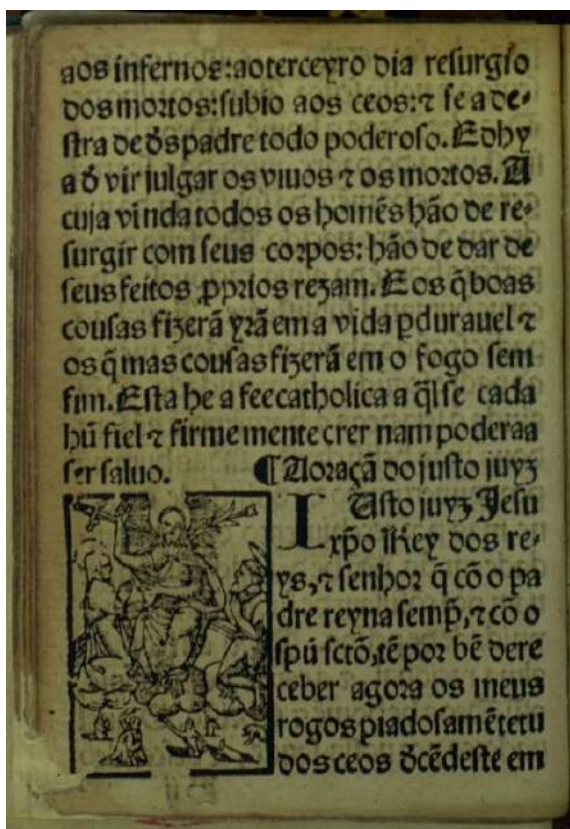 aos infernos: ao terceyro dia resurgio
dos mortos: subio aos ceos: ⁊ se a de-
stra de d̃s padre todo poderoso. E dhy
a d̃ vir julgar os viuos ⁊ os mortos. A
cuja vinda todos os homẽs hão de re-
surgir com seus corpos: hão de dar de
seus feitos ꝓprios rezam. E os q̃ boas
cousas fizerã yrã em a vida ꝑdurauel ⁊
os q̃ mas cousas fizerã em o fogo sem
fim. Esta he a fee catholica a q̃l se cada
hũ fiel ⁊ firmemente crer nam poderaa
ser saluo. ¶ A oraçã do justo juyz
IUsto juyz Jesu
xp̃o Rey dos re-
ys, ⁊ senhor q̃ cõ o pa
dre reyna semp̃, ⁊ cõ o
spũ sctõ, tẽ por bẽ de re
ceber agora os meus
rogos piadosamẽte tu
dos ceos d̃cẽdeste em